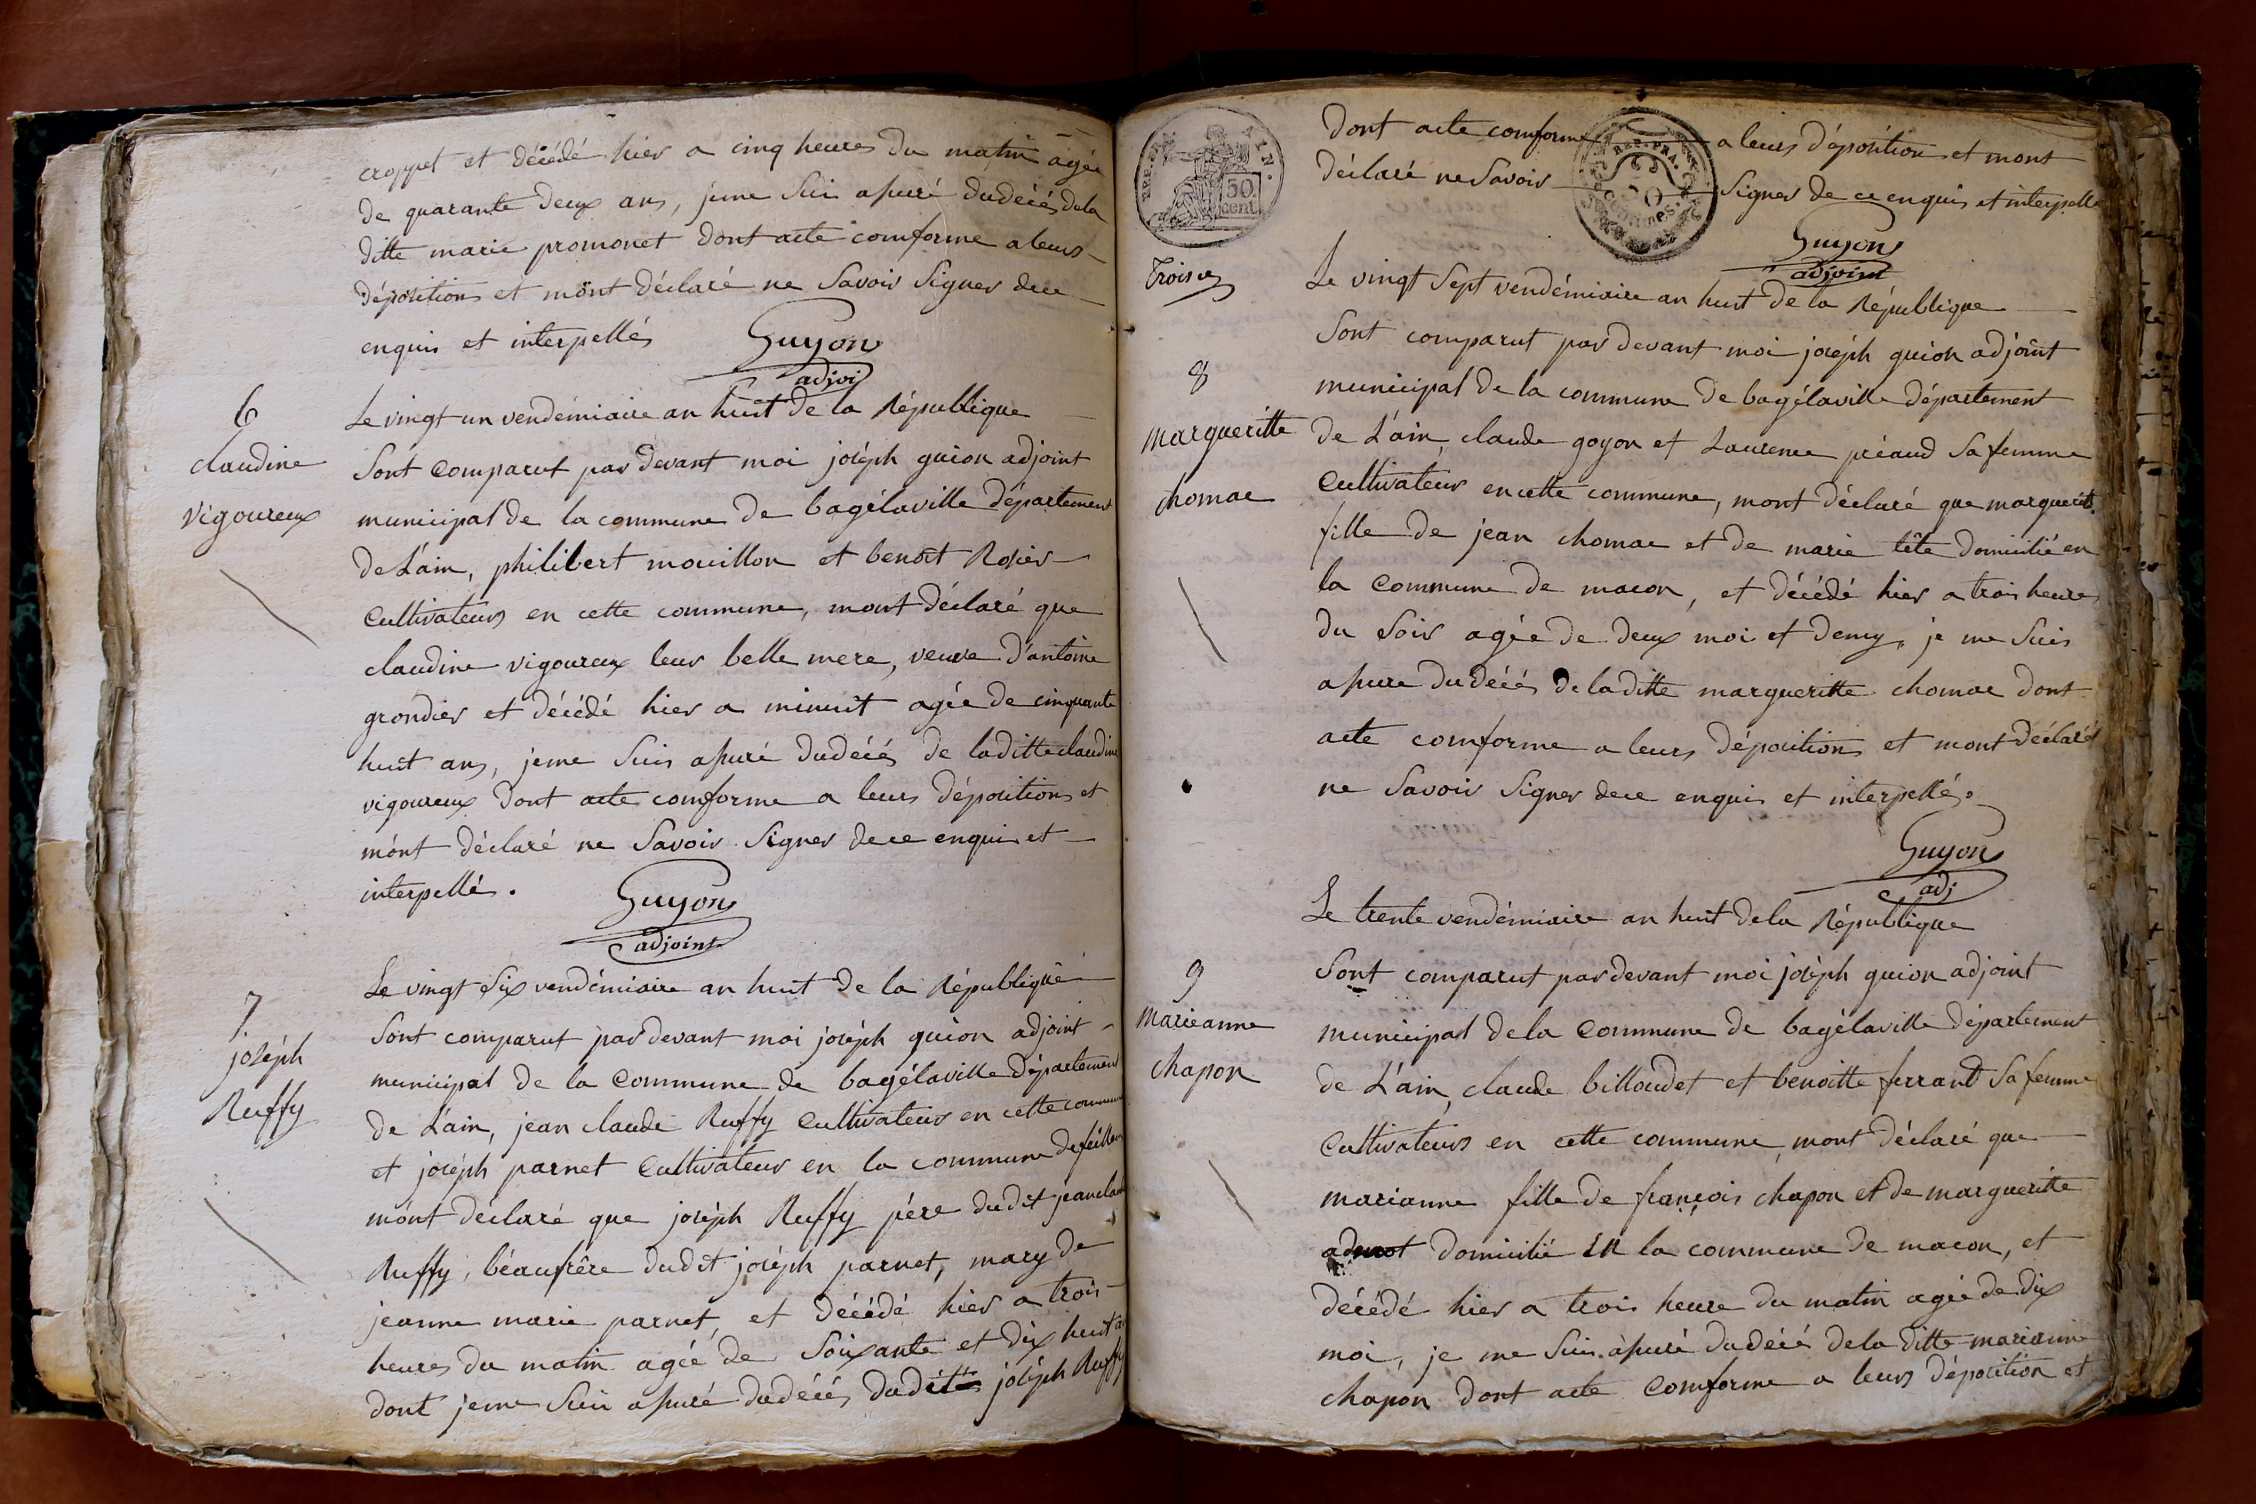 croppet et décédé hier a cinq heures du matin agée
de quarante deux ans, jeme suis apuré dudécés dela
ditte marie promonet dont acte comforme a leurs
dépositions et mont déclaré ne savoir signer dece
enquis et interpellés
Guyon
adjoi
6
claudine
vigoureux
Le vingt un vendémiaire an huit de la République
sont comparut pardevant moi joséph guion adjoint
municipal de la commune de bagélaville département
de L'ain, philibert mouillon et benoit Rosier
cultivateurs en cette commune, mont déclaré que
claudine vigoureux leur belle mere, veuve d'antoine
grondier et décédé hier a minuit agée de cinquante
huit ans, jeme suis apuré dudécés de laditte claudine
vigoureux dont acte comforme a leurs dépositions et
mont déclaré ne savoir signer dece enquis et
interpellé.
Guyon
adjoint
7
joséph
Ruffy
Le vingt six vendémiaire an huit de la République
sont comparut pardevant moi joséph guion adjoint
municipal de la commune de bagélaville département
de L'ain, jean claude Ruffy cultivateur en cette commune
et joséph parnet cultivateur en la commune de
mont déclaré que joséph Ruffy père dudit jeanclaude
Ruffy, béaufrêre dudit joséph parnet, mary de
jeanne marie parnet, et décédé hier a trois
heures du matin agée de soixante et dix huit
dont jeme suis apuré dudécés dudit joséph Ruffy
50
cent.
REP. FRA.
dont acte comforme a leurs déposition et mont
déclaré ne savoir signer de ce enquis et interpellé
Guyon
adjoint
Le vingt sept vendémiaire an huit de la République
8
margueritte
chomac
sont comparut pardevant moi joséph guion adjoint
municipal de la commune de bagélaville département
de L'ain, claude goyon et Laurence préaud sa femme
cultivateur encette commune, mont déclaré que marguerite
fille de jean chomac et de marie tête domicilié en
la commune de macon, et décédé hier a trois heures
du soir agée de deux moi et demy, je me suis
apure dudécés de laditte margueritte chomac dont
acte comforme a leurs dépositions et mont déclaré
ne savoir signer dece enquis et interpellé.
Guyon
adj
Le trente vendémiaire an huit dela République
9
marieanne
chapon
sont comparut pardevant moi joséph guion adjoint
municipal dela commune de bagélaville département
de L'ain, claude billoudet et benoitte ferrand sa femme
cultivateurs en cette commune, mont déclaré que
marianne fille de françois chapon et de margueritte
domicilié en la commune de macon, et
décédé hier a trois heure du matin agée de dix
moi, je me suis apuré dudécé dela ditte marianne
chapon dont acte comforme a leurs déposition et